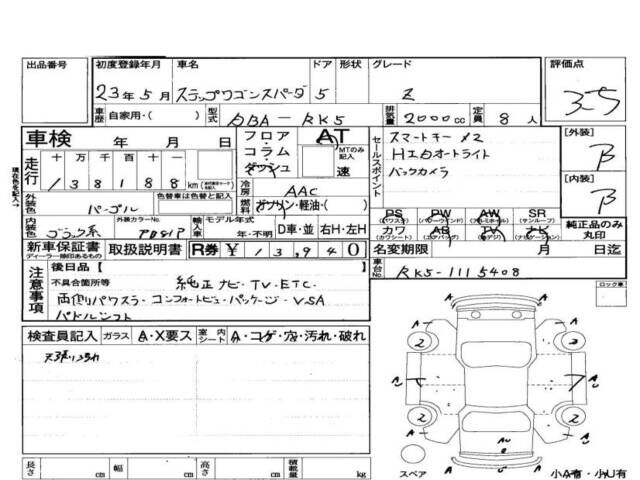 出品番号 初度登録年月 車名 ドア 形状 グレード 評価点
23年5月 ステップワゴンスパーダ 5 Z 3.5
車歴 自家用・( ) 型式 DBA-RK5 排気量 2000cc 定員 8人
車検 年 月 日 フロア・コラム・ダッシュ AT MTのみ記入 速
走行 十万千百十 138188 km
セールスポイント スマートキー×2
HIDオートライト
バックカメラ
[外装] B
[内装] B
現在色を記入→
外装色 パープル 色替車は色替と記入 冷房 AAC
燃料 ガソリン・軽油・( )
内装色 ブラック系 外装カラーNo. 輸入車 モデル年式 年・不明 D車・並 右H・左H
PS (パワステ) PW (パワーウィンドウ) AW (アルミホイル) SR (サンルーフ)
カワ (カワシート) AB (エアバッグ) TV ナビ (ナビゲーション) 純正品のみ丸印
新車保証書 ディーラー捺印あるもの 取扱説明書 R券 ¥13,940 名変期限 月 日迄
車台No. RK5-1115408
注意事項 後日品 [ ]
不具合箇所等 純正ナビ・TV・ETC・
両側パワスラ・コンフォートビューパッケージ・VSA
パドルシフト
ロック車
検査員記入 ガラス A・X要ス 室内シート A・コゲ・穴・汚れ・破れ
2 2
2 2
A A A A A A
AU
スペア 小A有・小U有
長さ cm 幅 cm 高さ cm 積載量 kg